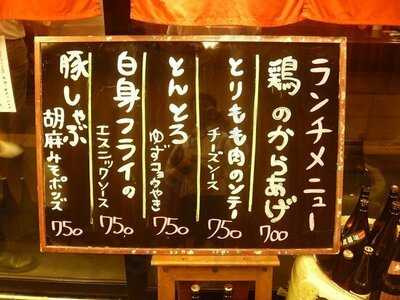 ランチメニュー
鶏のからあげ
700
とりもも肉のソテー
チーズソース
750
とんとろ
ゆずコショウやき
750
白身フライの
エスニックソース
750
豚しゃぶ
胡麻みそポンズ
750